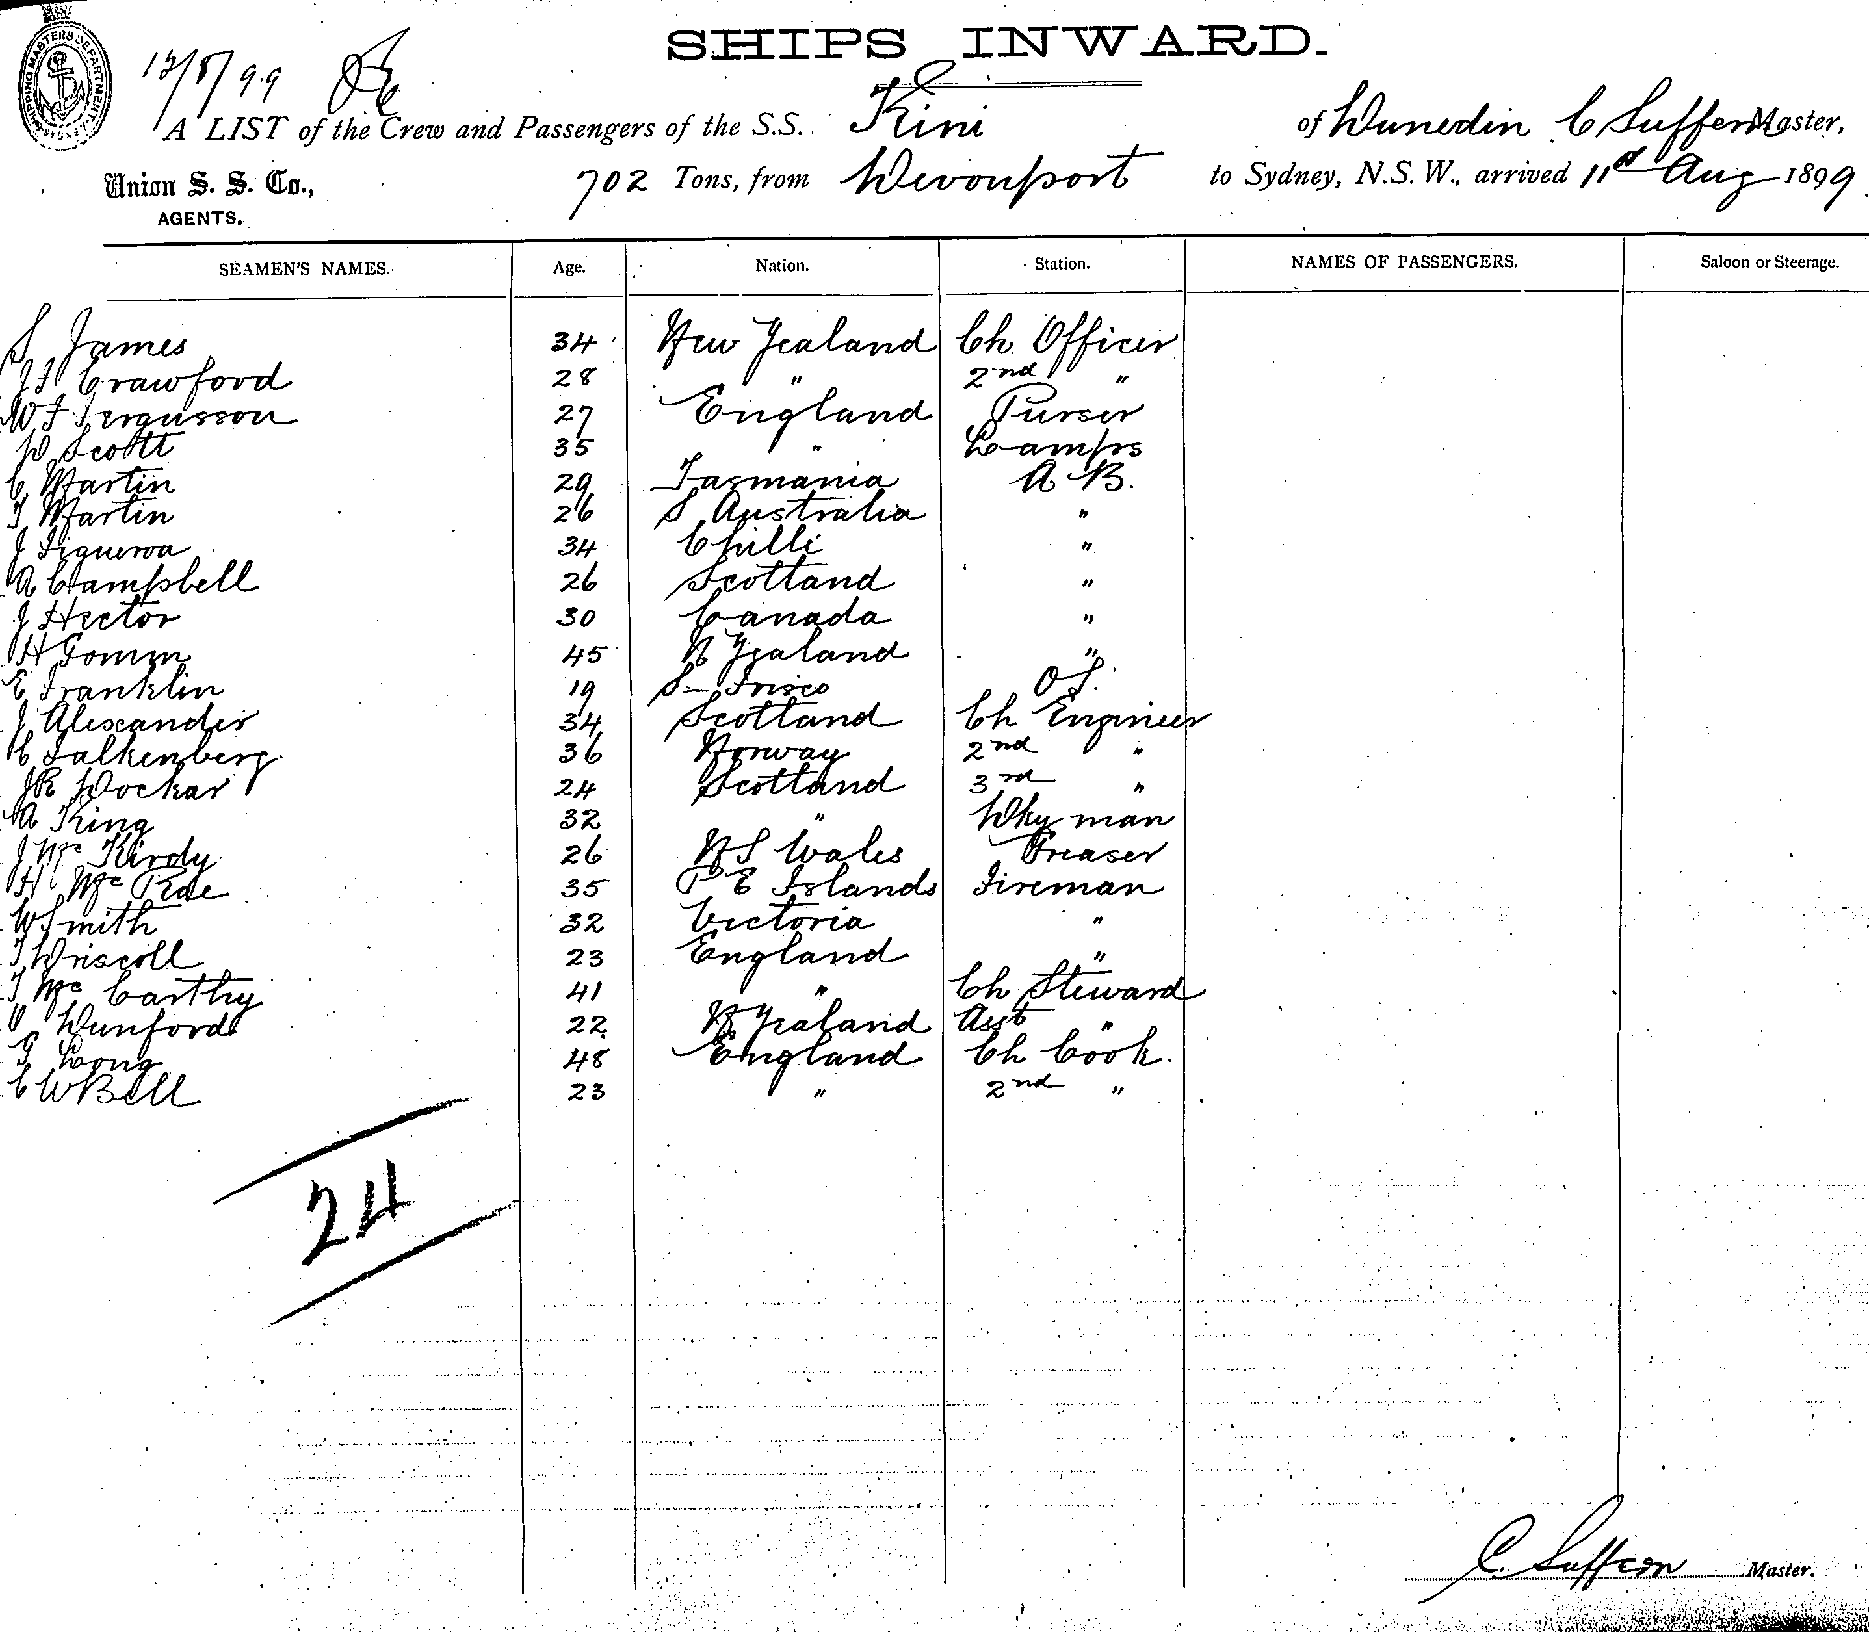 SHIPS INWARD.
SHIPPING MASTERS DEPARTMENT
12/8/99
A LIST of the Crew and Passengers of the S.S. Kini of Dunedin C Suffern Master,
Union S. S. Co., AGENTS.
702 Tons, from Devonport to Sydney, N.S.W., arrived 11th Aug 1899
SEAMEN'S NAMES. Age. Nation. Station. NAMES OF PASSENGERS. Saloon or Steerage.
S James 34 New Zealand Ch Officer
Crawford 28 " 2nd "
W F Fergusson 27 England Purser
Scott 35 " Lamps
C Martin 29 Tasmania A B.
T Martin 26 S Australia "
J Figueroa 34 Chilli "
A Campbell 26 Scotland "
J Hector 30 Canada "
H Gomm 45 N Zealand "
E Franklin 19 S Frisco O S.
J Alexander 34 Scotland Ch Engineer
C Falkenberg 36 Norway 2nd "
Dockar 24 Scotland 3rd "
A King 32 " Dky man
J Mc Kirdy 26 N S Wales Greaser
H Mc Rae 35 P E Islands Fireman
W Smith 32 Victoria "
T Driscoll 23 England "
T Mc Carthy 41 " Ch Steward
Dunford 22 N Zealand Asst "
G Long 48 England Ch Cook.
C W Bell 23 " 2nd "
24
C. Suffern Master.